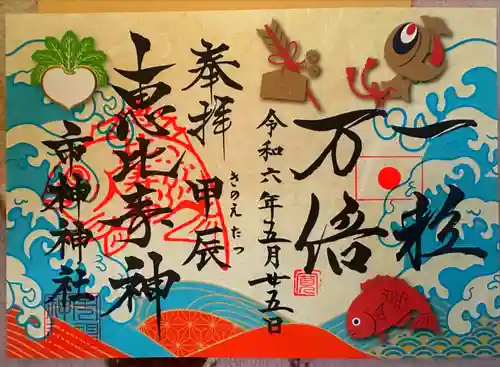 一粒
万倍
令和六年五月廿五日
きのえたつ
奉拝 甲辰
恵比寿神
市神神社